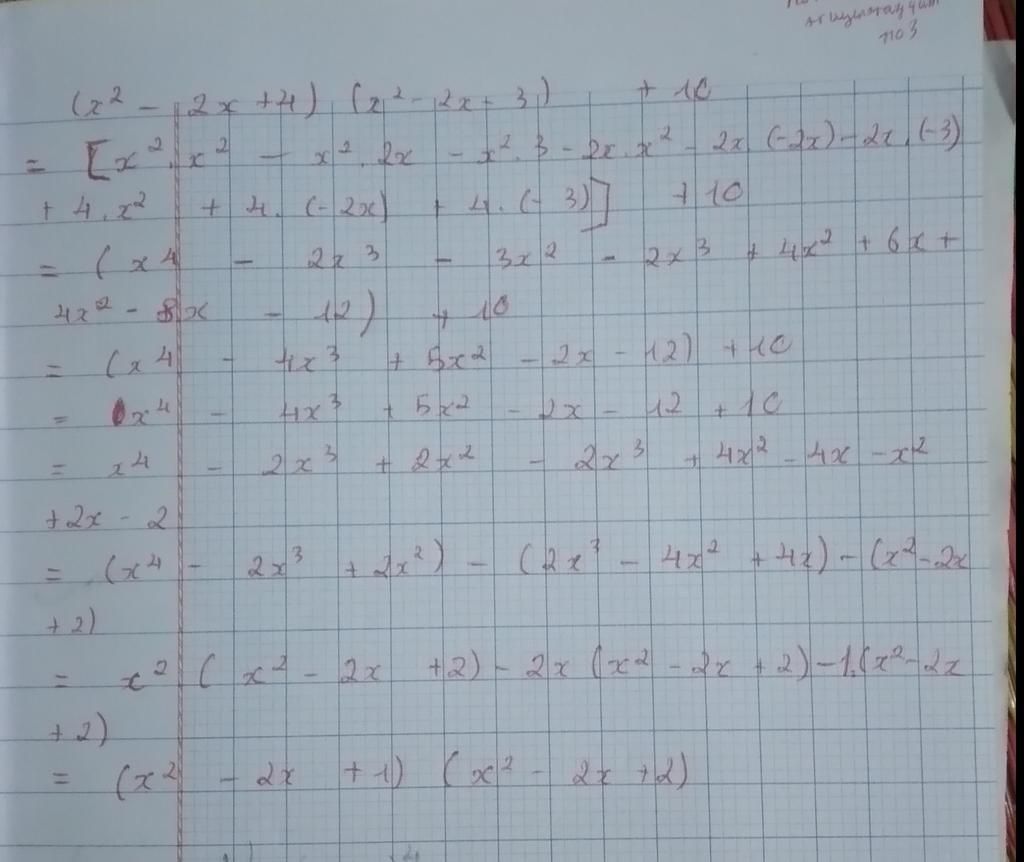 по 3
(x² - 2x + 4) (x² - 2x - 3) + 10
= [x² . x² - x² . 2x - x² . 3 - 2x . x² - 2x (-2x) - 2x . (-3)
+ 4 . x² + 4 . (-2x) + 4 . (-3)] + 10
= (x⁴ - 2x³ - 3x² - 2x³ + 4x² + 6x +
4x² - 8x - 12) + 10
= (x⁴ - 4x³ + 5x² - 2x - 12) + 10
= x⁴ - 4x³ + 5x² - 2x - 12 + 10
= x⁴ - 2x³ + 2x² - 2x³ + 4x² - 4x - x²
+ 2x - 2
= (x⁴ - 2x³ + 2x²) - (2x³ - 4x² + 4x) - (x² - 2x
+ 2)
= x² (x² - 2x + 2) - 2x (x² - 2x + 2) - 1.(x² - 2x
+ 2)
= (x² - 2x + 1) (x² - 2x + 2)